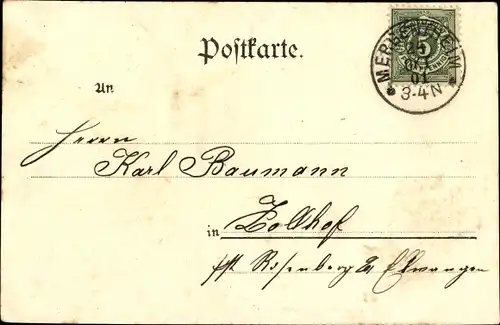 Postkarte.
5
MERGENTHEIM
01
3-4N
An
Herrn
Karl Baumann
in Zollhof
Rosenberg Ellwangen